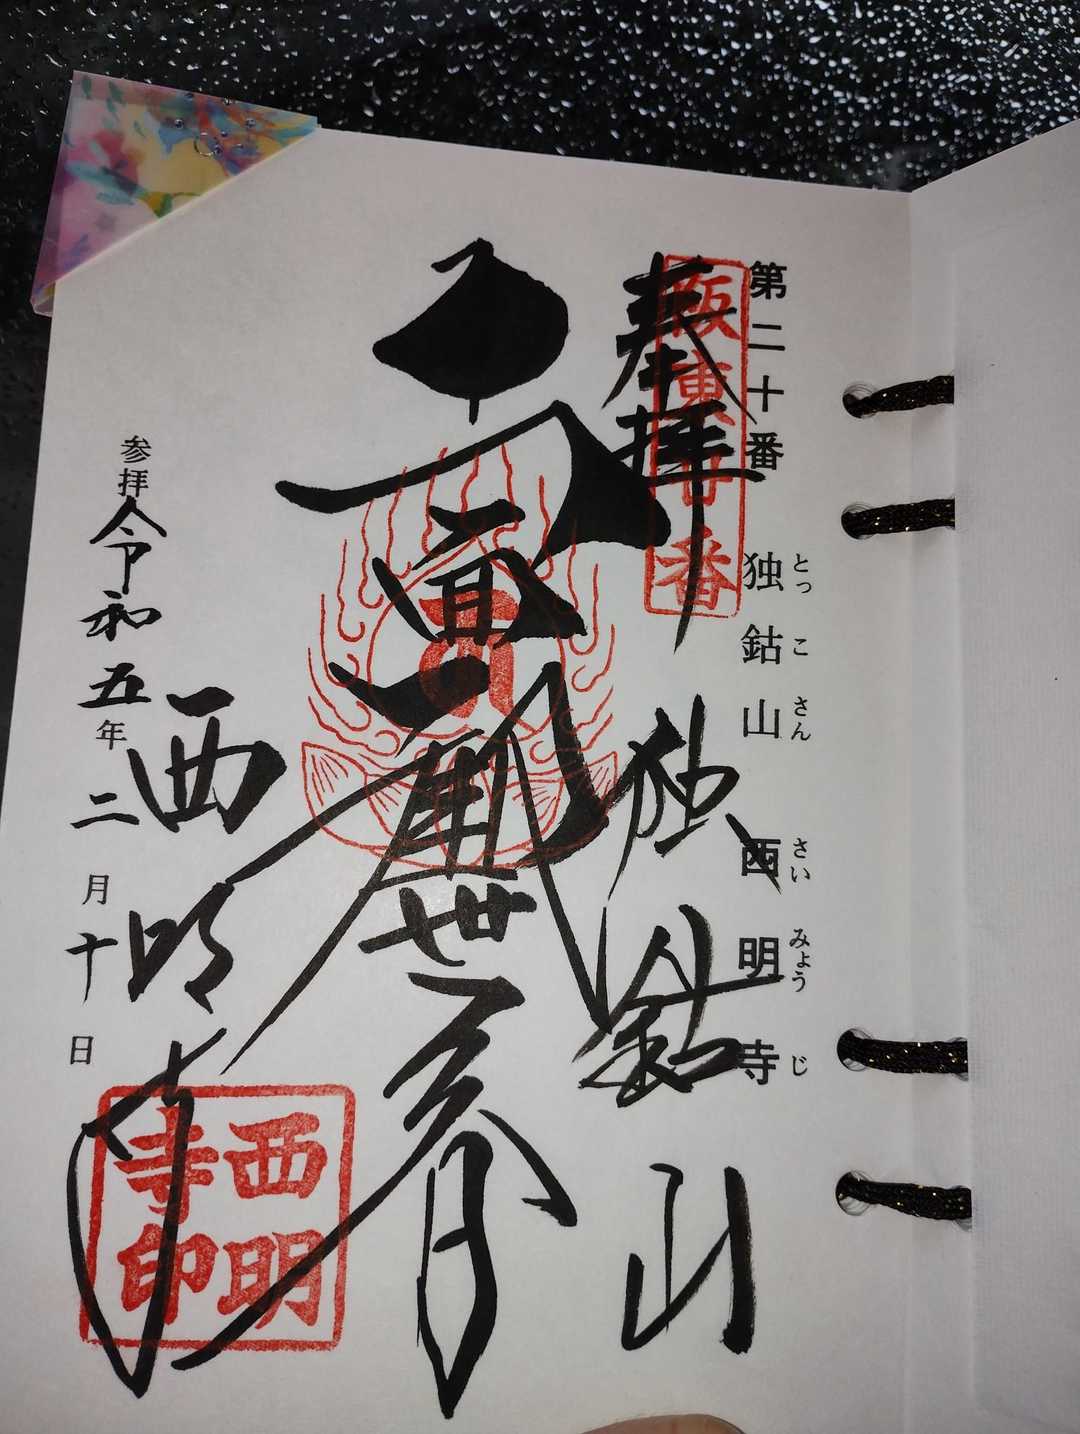 第二十番 独鈷山 西明寺
とっこさん さいみょうじ
奉拝 独鈷山
阪東廿番
十一面観世音
西明寺
西明寺印
参拝令和五年二月十日